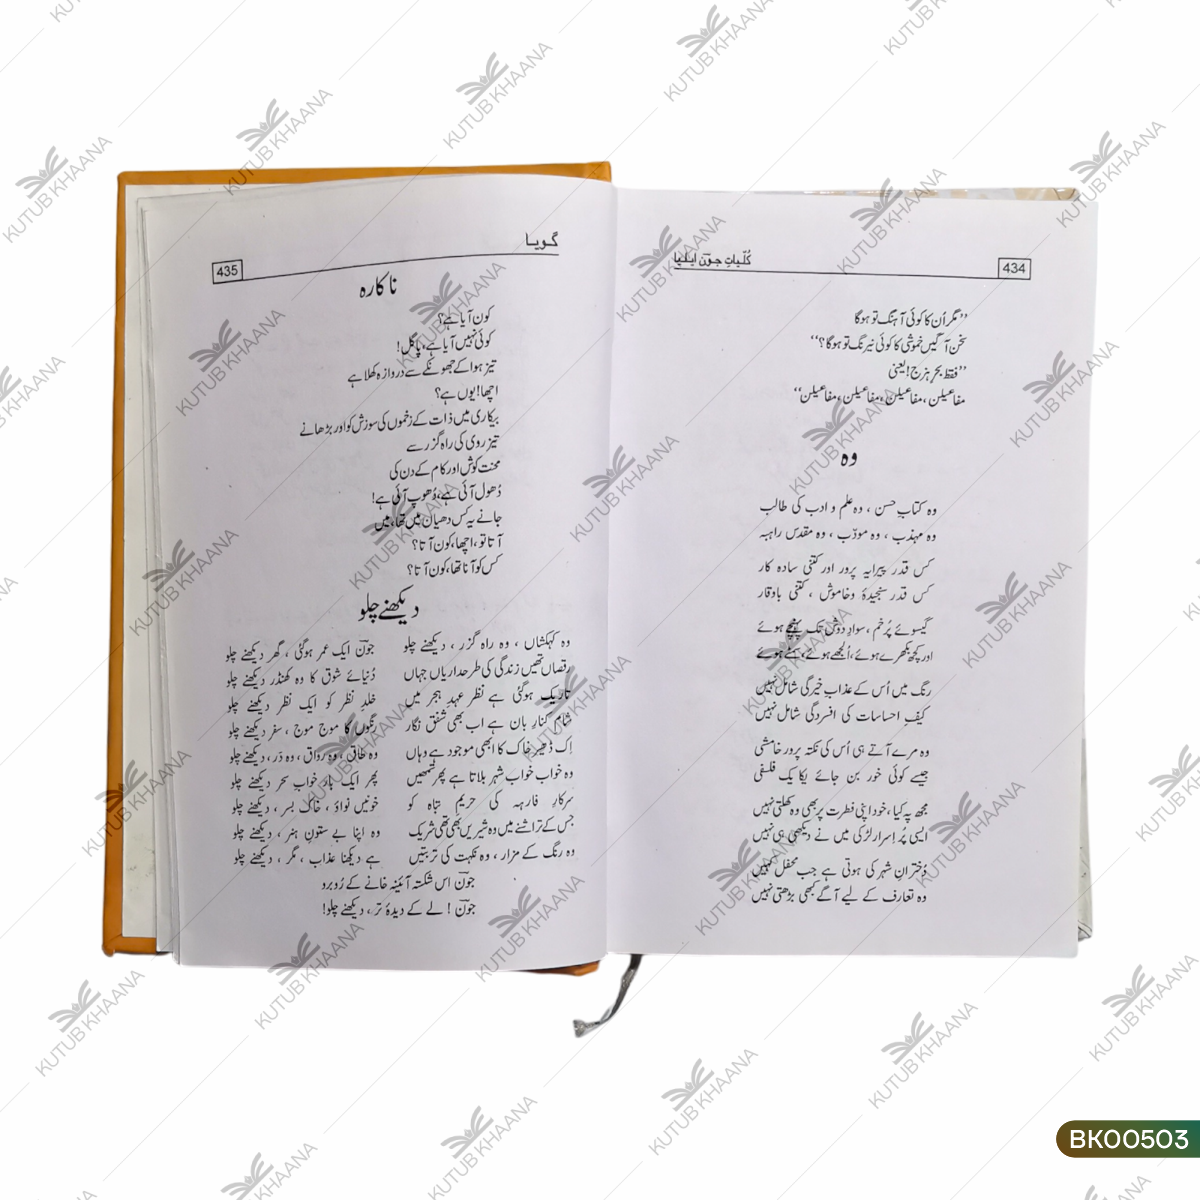 434
کُلّیاتِ جون ایلیا
”مگر اُن کا کوئی آہنگ تو ہوگا
سخن آگیں خموشی کا کوئی نیرنگ تو ہوگا؟“
”فقط بحرِ ہزج! یعنی
مفاعیلن، مفاعیلن، مفاعیلن، مفاعیلن“
وہ
وہ کتابِ حسن ، وہ علم و ادب کی طالب
وہ مہذب ، وہ مودّب ، وہ مقدس راہبہ
کس قدر پیرایہ پرور اور کتنی سادہ کار
کس قدر سنجیدۂ و خاموش ، کتنی باوقار
گیسوئے پُرخم ، سوادِ دوش تک پہنچے ہوئے
اور کچھ بکھرے ہوئے، اُلجھے ہوئے، سمٹے ہوئے
رنگ میں اُس کے عذابِ خیرگی شامل نہیں
کیفِ احساسات کی افسردگی شامل نہیں
وہ مرے آتے ہی اُس کی نکتہ پرور خامشی
جیسے کوئی حور بن جائے یکایک فلسفی
مجھ پہ کیا، خود اپنی فطرت پر بھی وہ کھلتی نہیں
ایسی پُر اِسرار لڑکی میں نے دیکھی ہی نہیں
دُخترانِ شہر کی ہوتی ہے جب محفل کہیں
وہ تعارف کے لیے آگے کبھی بڑھتی نہیں
گویا
435
ناکارہ
کون آیا ہے؟
کوئی نہیں آیا ہے، پاگل!
تیز ہوا کے جھونکے سے دروازہ کھلا ہے
اچھا! یوں ہے؟
بیکاری میں ذات کے زخموں کی سوزش کو اور بڑھانے
تیز روی کی راہ گزر سے
محنت کوش اور کام کے دن کی
دُھول آئی ہے، دُھوپ آئی ہے!
جانے یہ کس دھیان میں تھا، میں
آتا تو، اچھا، کون آتا؟
کس کو آنا تھا، کون آتا؟
دیکھنے چلو
وہ کہکشاں ، وہ راہ گزر ، دیکھنے چلو جون ایک عمر ہوگئی ، گھر دیکھنے چلو
رقصاں تھیں زندگی کی طرحداریاں جہاں دُنیائے شوق کا وہ کھنڈر دیکھنے چلو
تاریک ہوگئی ہے نظر عہدِ ہجر میں خلدِ نظر کو ایک نظر دیکھنے چلو
شام کنارِ بان ہے اب بھی شفق نگار رنگوں کا موج موج ، سفر دیکھنے چلو
اِک ڈھیر خاک کا ابھی موجود ہے وہاں وہ طاق ، وہ رواق ، وہ در ، دیکھنے چلو
وہ خواب خواب شہر بلاتا ہے پھر تمھیں پھر ایک بار خوابِ سحر دیکھنے چلو
سرکارِ فارہہ کی حریمِ تباہ کو خونیں نواؤ ، خاک بسر ، دیکھنے چلو
جس کے تراشنے میں وہ شیریں بھی تھی شریک وہ اپنا بے ستونِ ہنر ، دیکھنے چلو
وہ رنگ کے مزار ، وہ نکہت کی تربتیں ہے دیکھنا عذاب ، مگر ، دیکھنے چلو
جون اس شکستہ آئینہ خانے کے رُوبرو
جون ! لے کے دیدۂ تر ، دیکھنے چلو!
KUTUB KHAANA
BK00503